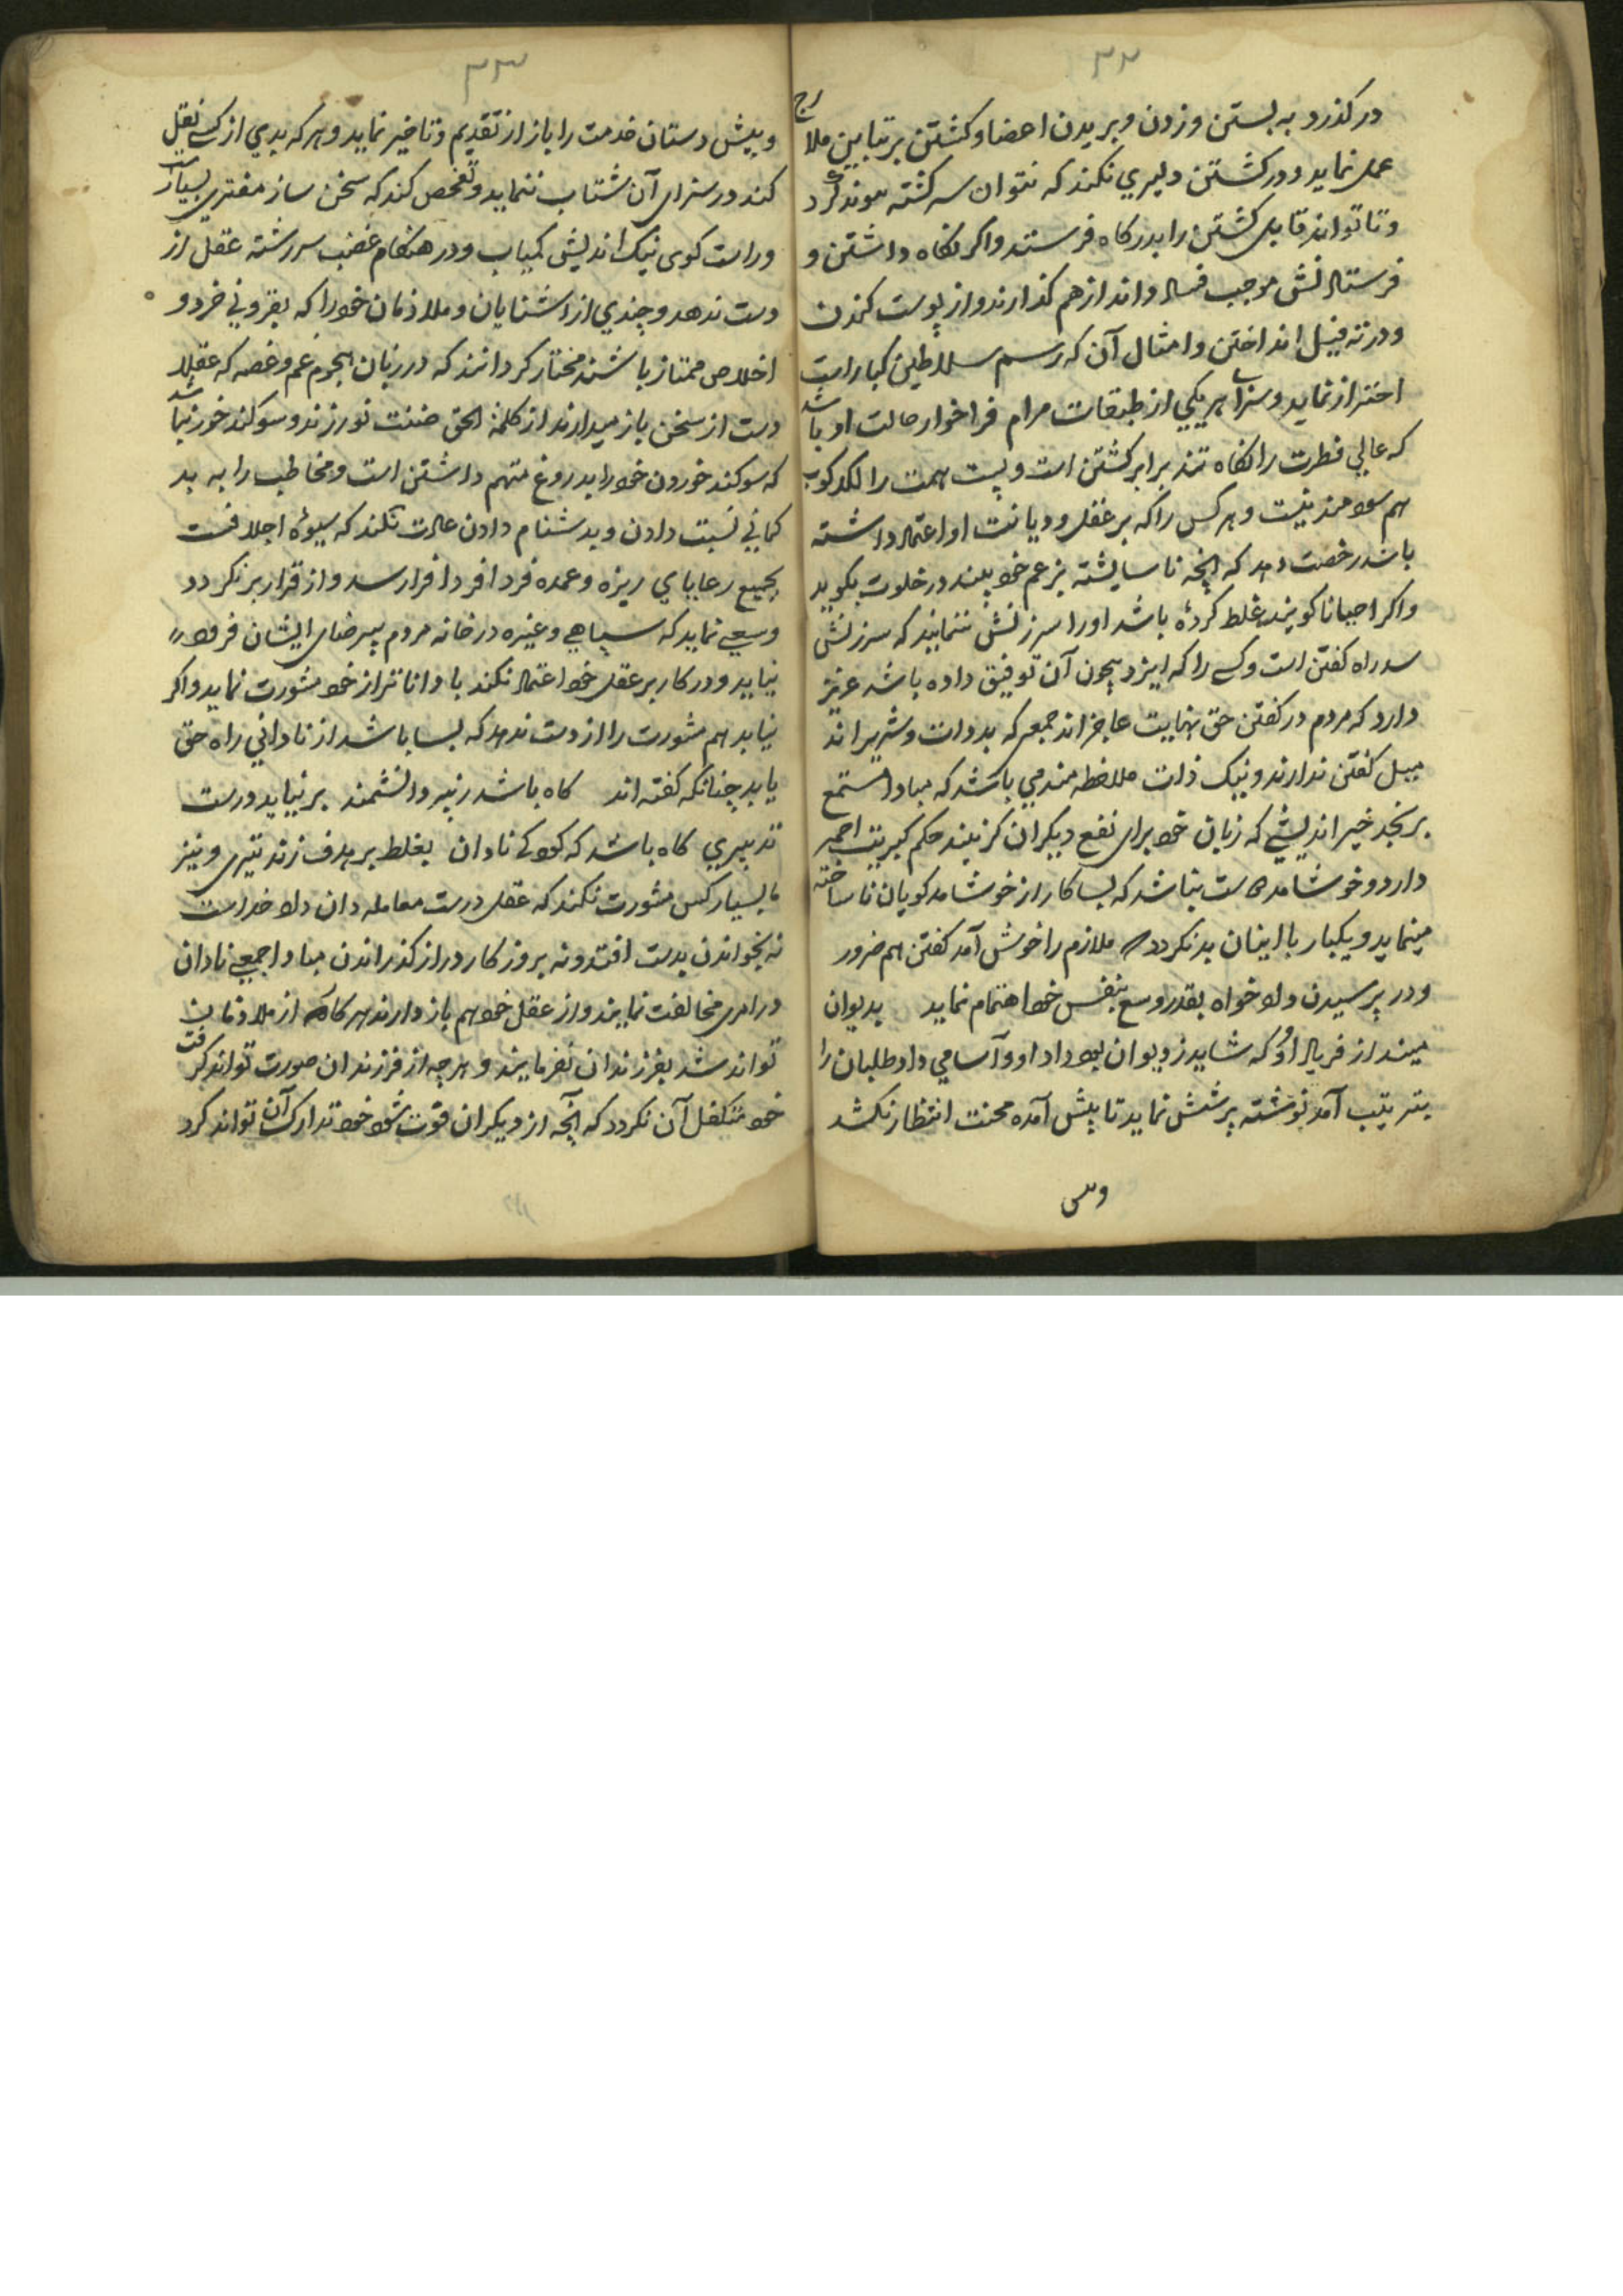 ۳۲
درکذرد به بستن و زدن و بریدن اعضا و کشتن بر تباین ملا رج
عمل نماید و در کشتن دلیري نکند که نتوان سر کشته موند کرد
و تا تواند قابل کشتن را بدرکاه فرستد و اکر نکاه داشتن و
فرستادنش موجب فساد داند از هم کذارند و از پوست کندن
و در ته فیل انداختن و امثال آن که رسم سلاطین کبار است
احتراز نماید و سزای هر یکي از طبقات مرام فراخوار حالت او باشد
که عالي فطرت را نکاه تند برابر کشتن است و پست همت را لکدکوب
هم سودمند نیست و هر کس را که بر عقل و دیانت او اعتماد داشته
باشد رخصت دهد که انچه ناسایشته بزعم خود بیند در خلوت بکوید
و اکر احیانا کوینده غلط کرده باشد او را سرزنش ننمایند که سرزنش
سد راه کفتن است و کسے را که ایزد بیچون آن توفیق داده باشد عزیز
دارد که مردم در کفتن حق بنهایت عاجز اند جمعے که بدذات و شریر اند
میل کفتن ندارند و نیک ذات ملاحظه مند مي باشد که مبادا مستمع
برنجد خیر اندیشے که زیان خود برای نفع دیکران کزیند حکم کبریت احمر
دارد و خوشامد دوست نباشد که بسا کار از خوشامدکویان ناساخته
مینماید و یکبار با اینان بد نکردد که ملازم را خوش آمد کفتن هم ضرور
و در پرسیدن داد خواه بقدر وسع بنفس خود اهتمام نماید بدیوان
مینداز فریاد او که شاید ز دیوان بود داد او و آسامي دادطلبان را
بترتیب آمد نوشته پرسش نماید تا پیش آمده محنت انتظار نکشد
۳۳
و پیش دستان خدمت را باز از تقدیم و تاخیر نماید و هر که بدي از کسے نقل
کند در سزای آن شتاب ننماید و تفحص کند که سخن ساز مفتری بسیار است
و راست کوی نیک اندیش کمیاب و در هنکام غضب سررشته عقل از
دست ندهد و چندي از اشنایان و ملازمان خود را که بفزونے خرد و
اخلاص ممتاز باشند مختار کرداند که در زمان هجوم غم و غصه که عقلا
دست از سخن باز میدارند از کلمة الحق ضنت نورزند و سوکند خور نباشد
که سوکند خوردن خود را بدروغ متهم داشتن است و مخاطب را به بد
کماني نسبت دادن و بدشنام دادن عادت نکند که شیوه اجلافست
بجمیع رعایای ریزه و عمده فردا فردا فرا رسد و از قرار برنکردد
و سعے نماید که سپاهے و غیره در خانه مردم بے رضای ایشان فرود
نیاید و در کار بر عقل خود اعتماد نکند با داناتر از خود مشورت نماید و اکر
نیابد هم مشورت را از دست ندهد که بسا باشد از ناداني راه حق
یابد چنانکه کفته اند کاه باشد ز پیر دانشمند بر نیاید درست
تدبیري کاه باشد که کودکے نادان بغلط بر هدف زند تیری و نیز
با بسیار کس مشورت نکند که عقل درست معامله دان داد خداست
نه بخواندن بدست افتد و نه بروزکار دراز کذراندن مبادا جمعے نادان
در امری مخالفت نمایند و از عقل خود هم باز دارند هر کاه که از ملازمان
تواند شد بفرزندان نفرمایند و هر چه از فرزندان صورت تواند کرفت
خود متکفل آن نکردد که آنچه از دیکران فوت شود خود تدارک آن تواند کرد